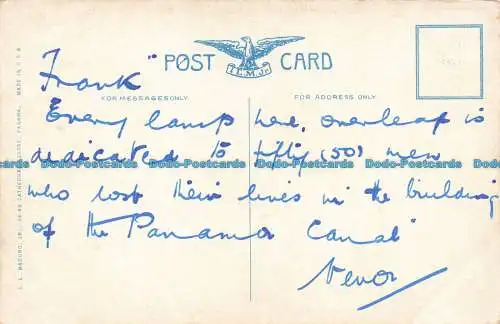 POST CARD
I.L.M.Jr.
Frank"
FOR MESSAGES ONLY
FOR ADDRESS ONLY.
"Every lamp here, overleaf is
dedicated to fifty (50) men
who lost their lives in the building
of the Panama Canal"
Trevor
I. L. MADURO, JR., CATHEDRAL PANAMA. MADE IN U.S.A.
Dodo-Postcards Dodo-Postcards Dodo-Postcards Dodo-Postcards Dodo-Postcards